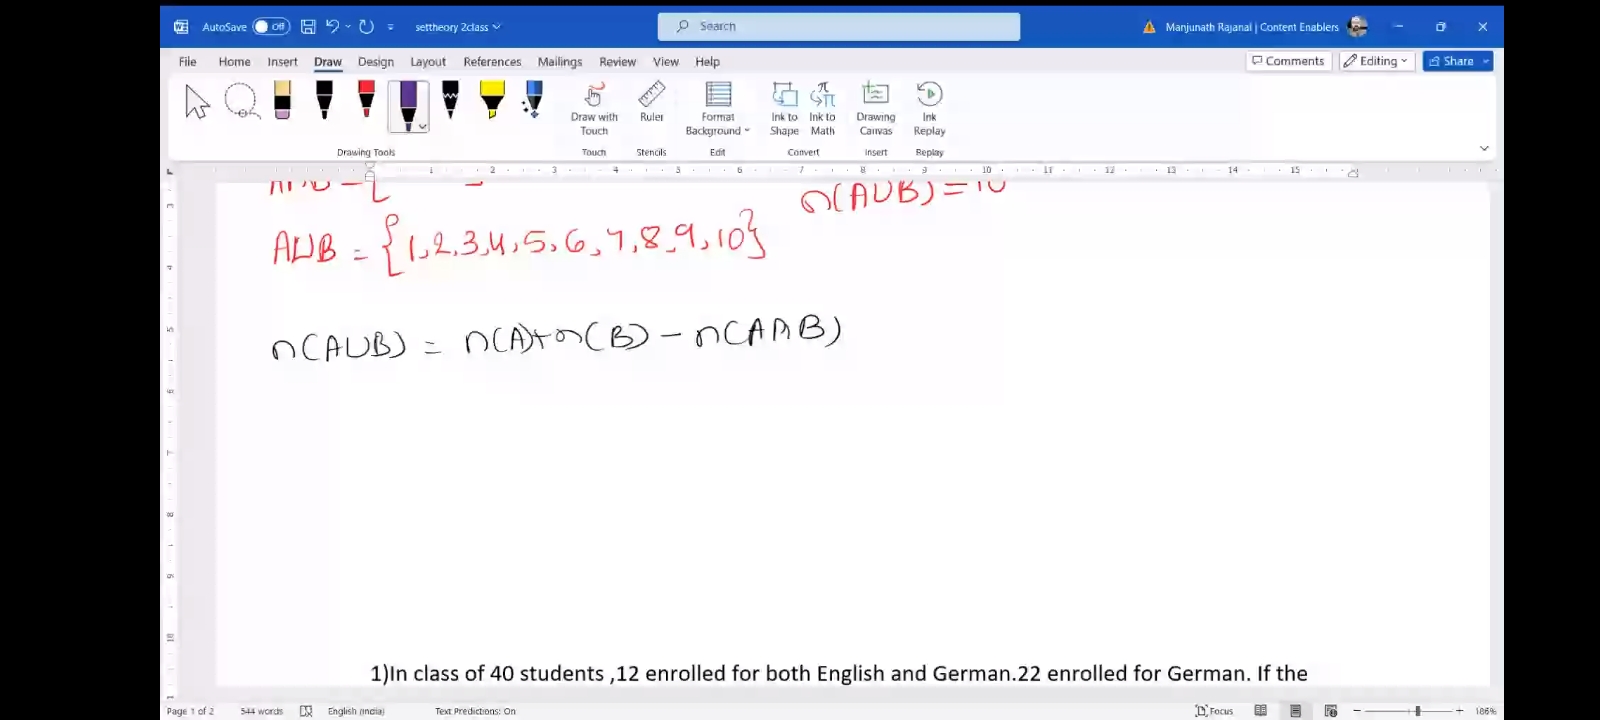 AutoSave Off settheory 2class Search Manjunath Rajanal | Content Enablers
File Home Insert Draw Design Layout References Mailings Review View Help Comments Editing Share
Draw with Touch Ruler Format Background Ink to Shape Ink to Math Drawing Canvas Ink Replay
Drawing Tools Touch Stencils Edit Convert Insert Replay
1 2 3 4 5 6 7 8 9 10 11 12 13 14 15
n(A∪B) = 10
A∪B = {1,2,3,4,5,6,7,8,9,10}
n(A∪B) = n(A)+n(B) - n(A∩B)
1)In class of 40 students ,12 enrolled for both English and German.22 enrolled for German. If the
Page 1 of 2 544 words English (India) Text Predictions: On Focus 186%